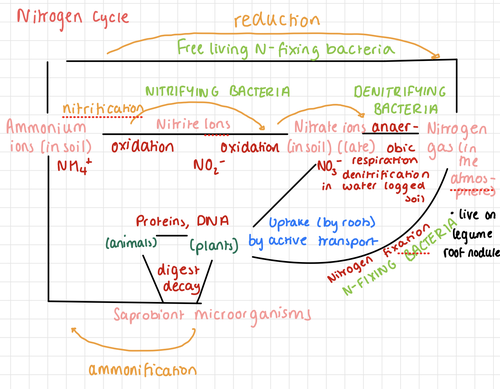 Nitrogen Cycle
reduction
Free living N-fixing bacteria
nitrification
NITRIFYING BACTERIA
DENITRIFYING
BACTERIA
Ammonium
ions (in soil)
NH₄⁺
oxidation
Nitrite Ions
NO₂⁻
oxidation
Nitrate ions
(in soil) (late)
NO₃⁻
anaer-
obic
respiration
denitrification
in water logged
soil
Nitrogen
gas (in
the
atmos-
phere)
• live on
legume
root nodule
Proteins, DNA
(animals)
(plants)
Uptake (by roots)
by active transport
Nitrogen fixation
N-FIXING BACTERIA
digest
decay
Saprobiont microorganisms
ammonification